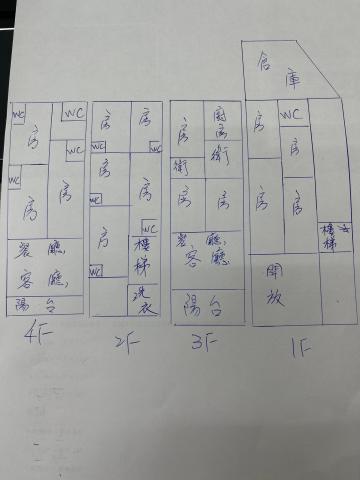 WC WC
房
WC
WC
房 房
餐 廳
客 廳
陽 台
4F
房 房
WC WC
房 房
WC
WC
房
樓
梯
WC
洗
衣
2F
房 廚
房
衛 衛
房 房
餐 廳
客 廳
陽 台
3F
倉
庫
WC
房
房
房 房
樓
梯
開
放
1F